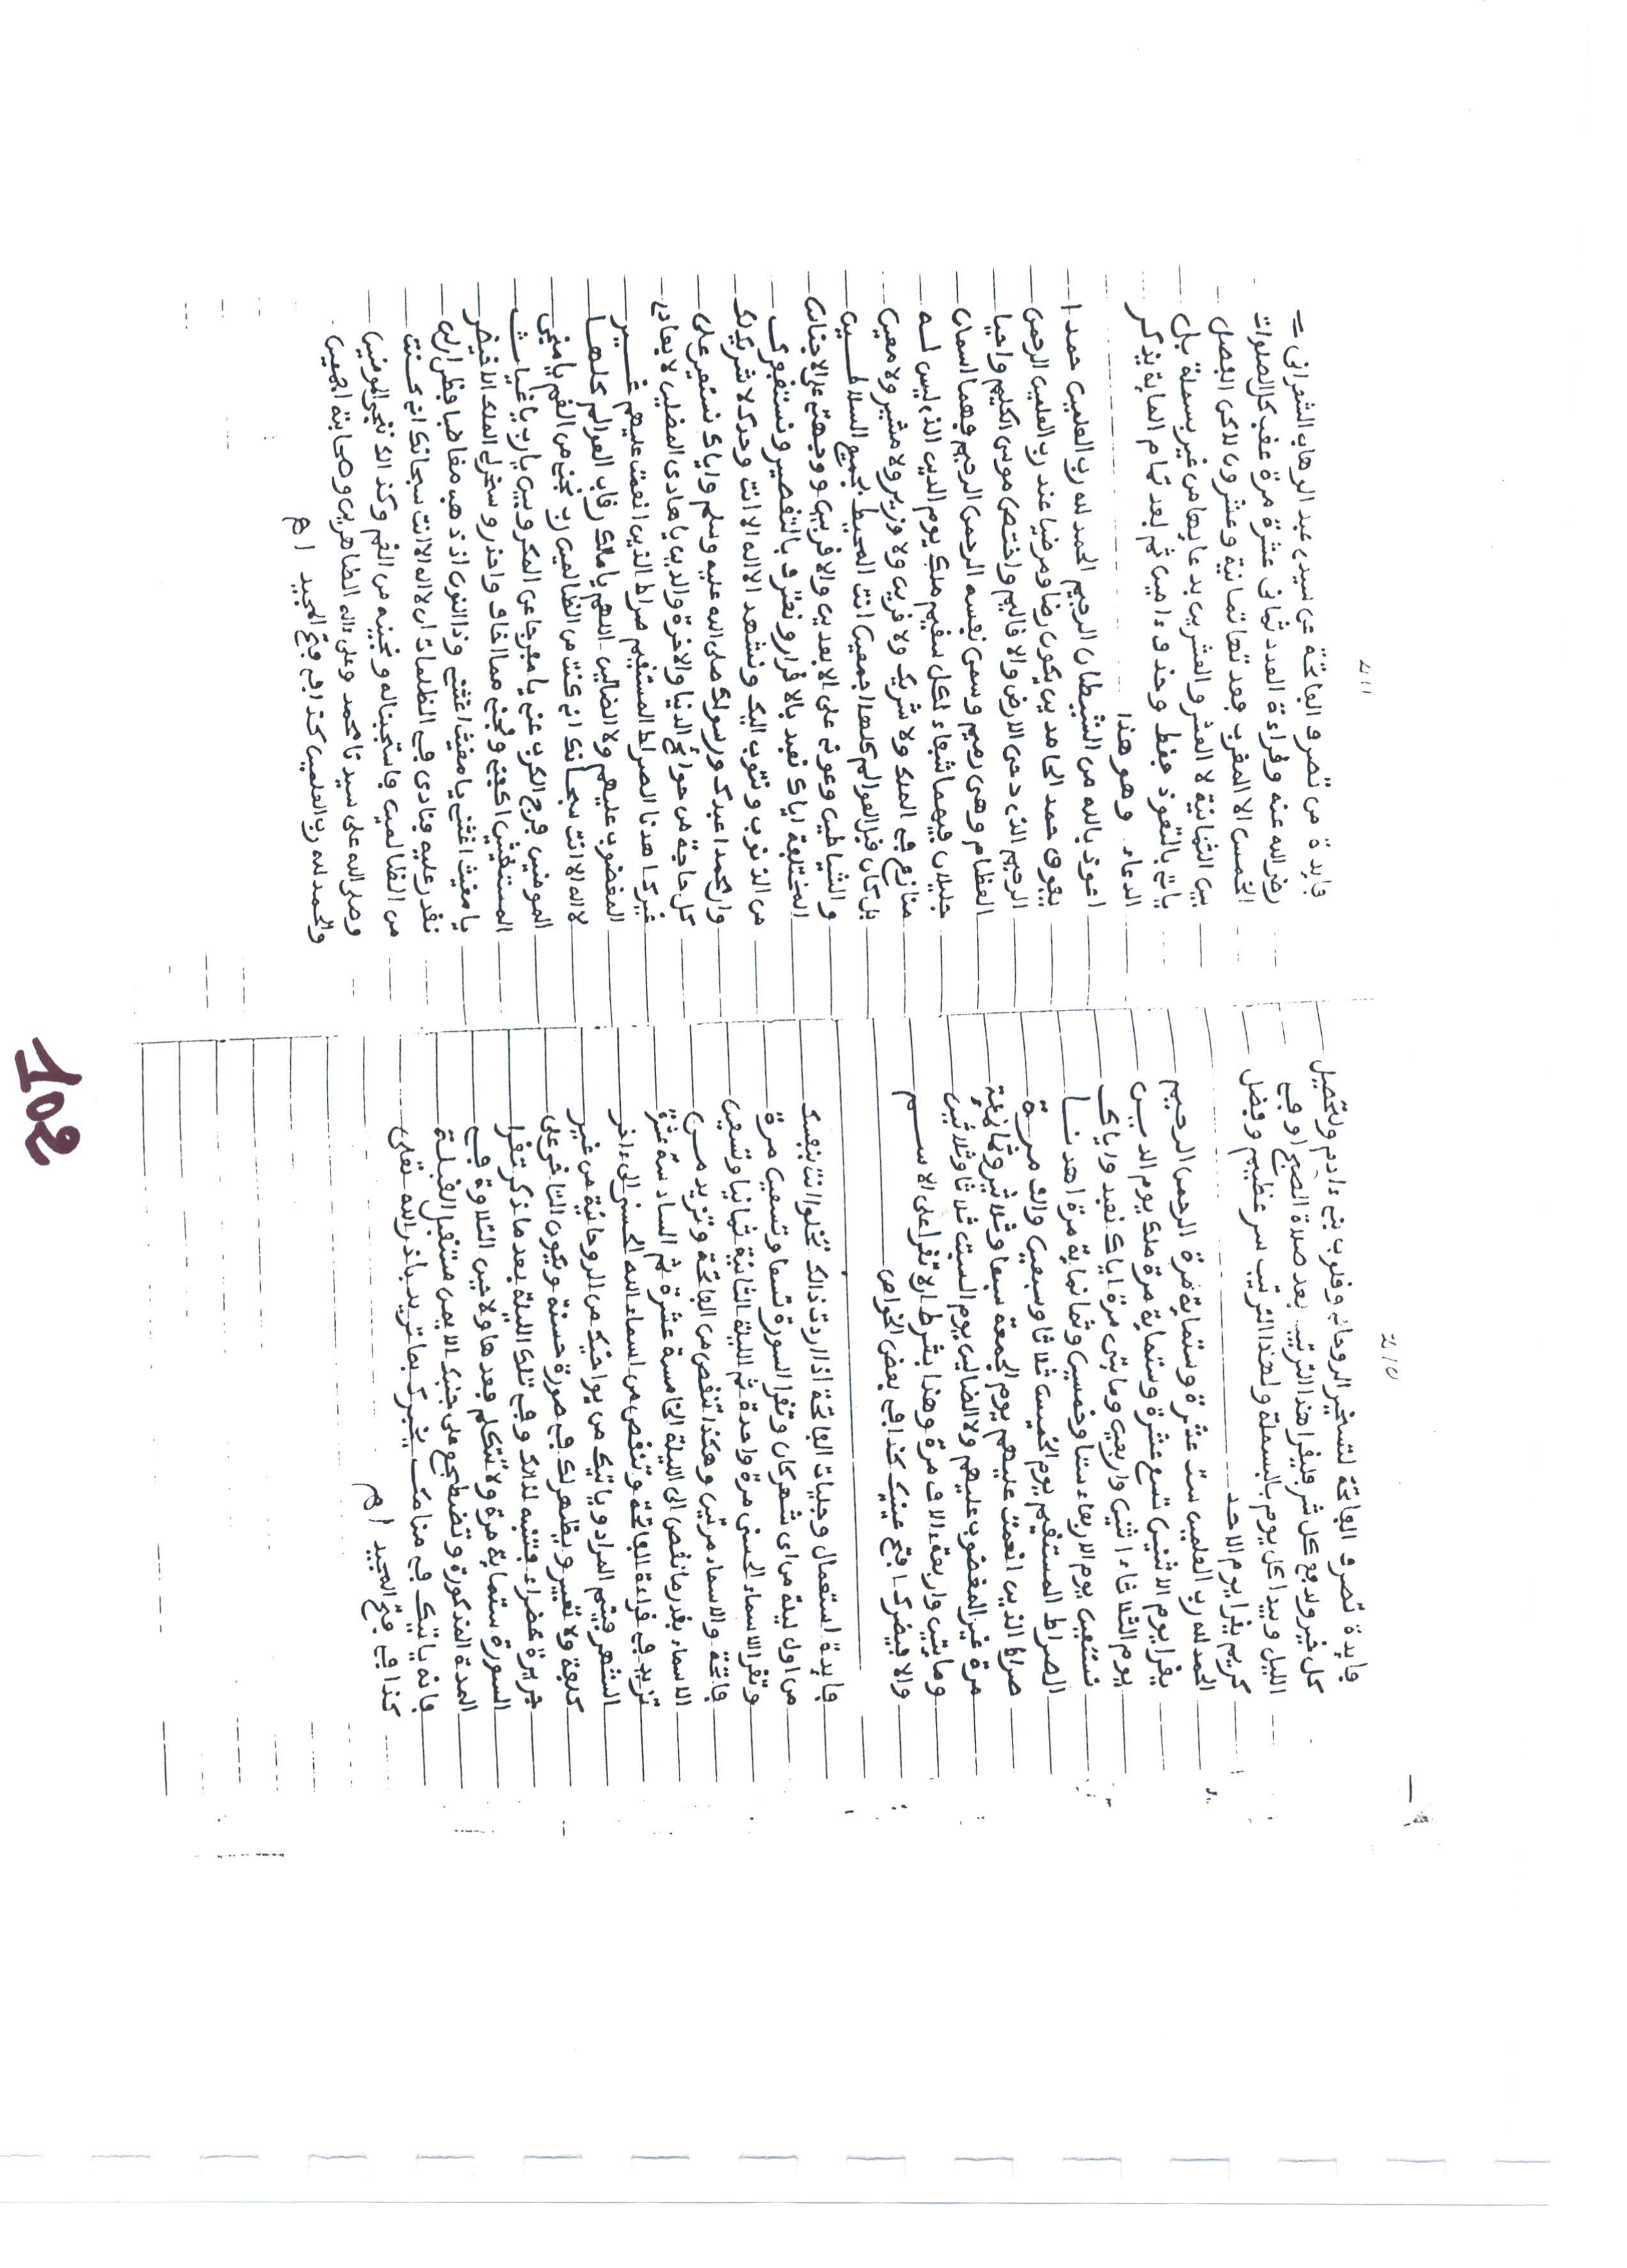 210
فايدة تصرف الفاتحة لتسخير الروحاني وقلوب بني ءادم ولتحصيل
كل خير ولدفع كل شر فليقرا هذا الترتيب بعد صلاة الصبح او في
الليل ويبدا كل يوم بالبسملة ولهذا الترتيب سر عظيم وفضل
كريم يقرا يوم الاحد
الحمد لله رب العلمين ست عشرة وستماية مرة الرحمن الرحيم
يقرا يوم الاثنين تسع عشرة وستماية مرة ملك يوم الدين
يوم الثلاثاء اثنين واربعين ومايتين مرة اياك نعبد واياك
نستعين يوم الاربعاء ستا وخمسين وثمانماية مرة اهدنا
الصراط المستقيم يوم الخميس ثلاثا وسبعين والف مرة
صراط الذين انعمت عليهم يوم الجمعة سبعا وثلاثين وثمانماية
مرة غير المغضوب عليهم ولا الضالين يوم السبت ثلاثا وثلاثين
ومايتين واربعة ءالاف مرة وهذا بشرط ان لا تقرا على الاسم
والا فيضرك افتح عينيك كذا في بعض الخواص
فايدة استعمال وجلبات الفاتحة اذا اردت ذالك تخلوا انت بنفسك
من اول ليلة من اي شهر كان وتقرا السورة تسعا وتسعين مرة
وتقرا الاسماء الحسنى مرة واحدة ثم الليلة الثانية ثمانيا وتسعين
فاتحة والاسماء مرتين وهكذا تنقص من الفاتحة وتزيد من
الاسماء بقدر ما تنقص الى الليلة الخامسة عشرة ثم السادسة عشرة
تزيد في قراءة الفاتحة وتنقص من اسماء الله الحسنى الى ءاخر
الشهر فيتم المراد وياتيك من يواخيك من الروحانية من غير
كلفة ولا تغيير ويظهر لك في صورة حسنة ويكون التاخر على
جريرة خضراء فتنبه لذالك وفي تلك الليلة بعد ما ذكر تقرا
السورة ستماية مرة ولا تتكلم بعدها ولا حين التلاوة في
المدة المذكورة وتضطجع على جنبك الايمن مستقبل القبلة
فانه ياتيك في منامك يخبرك بما تريد باذن الله تعلى
كذا في فتح المجيد اهـ
211
فايدة من تصرف الفاتحة عن سيدي عبد الوهاب الشعراني
رضي الله عنه وقراءة العدد ثماني عشرة مرة عقب كل الصلوات
الخمس الا المغرب فعدتها ثمانية وعشرون لاكن الفصل
بين الثمانية لا العشر والعشرين بدعايها من غير بسملة بل
ياتي بالتعوذ فقط وحذف ءامين ثم بعد تمام الماية يذكر
الدعاء وهو هذا
اعوذ بالله من الشيطان الرجيم الحمد لله رب العلمين حمدا
يفوق حمد الحامدين يكون رضا ومرضيا عند رب العلمين الرحمن
الرحيم الذي دحى الارض والاقاليم واختص موسى الكليم واحيا
العظام وهي رميم وسمى نفسه الرحمن الرحيم فهما اسمان
جليلان فيهما شفاء لكل سقيم ملك يوم الدين الذي ليس له
منازع في الملك ولا شريك ولا قرين ولا وزير ولا مشير ولا معين
بل كان قبل العوالم كلها اجمعين انت المحيط بجميع السلاطين
والشياطين وعوني على الابعدين والاقربين ووجهتي على الاجناس
المختلفة اياك نعبد بالاقرار ونعترف بالتقصير ونستغفرك
من الذنوب ونتوب اليك ونشهد الا اله الا انت وحدك لا شريك لك
وان محمدا عبدك ورسولك صلى الله عليه وسلم واياك نستعين على
كل حاجة من حوائج الدنيا والاخرة والدين يا هادي المضلين لا هادي
غيرك اهدنا الصراط المستقيم صراط الذين انعمت عليهم غير
المغضوب عليهم ولا الضالين اللهم يا مالك رقاب العوالم كلها
لا اله الا انت سبحانك اني كنت من الظالمين رب نجني من الغم يا منجي
المومنين فرج الكرب عني يا مفرجا عن المكروبين يا رب يا غياث
المستغيثين اكفني ونجني مما اخاف واحذر وسخر لي الملك الاخيضر
يا مغيث اغثني يا مغيث اغثني وذا النون اذ ذهب مغاضبا فظن ان لن
نقدر عليه فنادى في الظلمات ان لا اله الا انت سبحانك اني كنت
من الظالمين فاستجبنا له ونجينه من الغم وكذالك ننجي المومنين
وصلى الله على سيدنا محمد وعلى ءاله الطاهرين وصحابته اجمعين
والحمد لله رب العلمين كذا في فتح المجيد اهـ
102